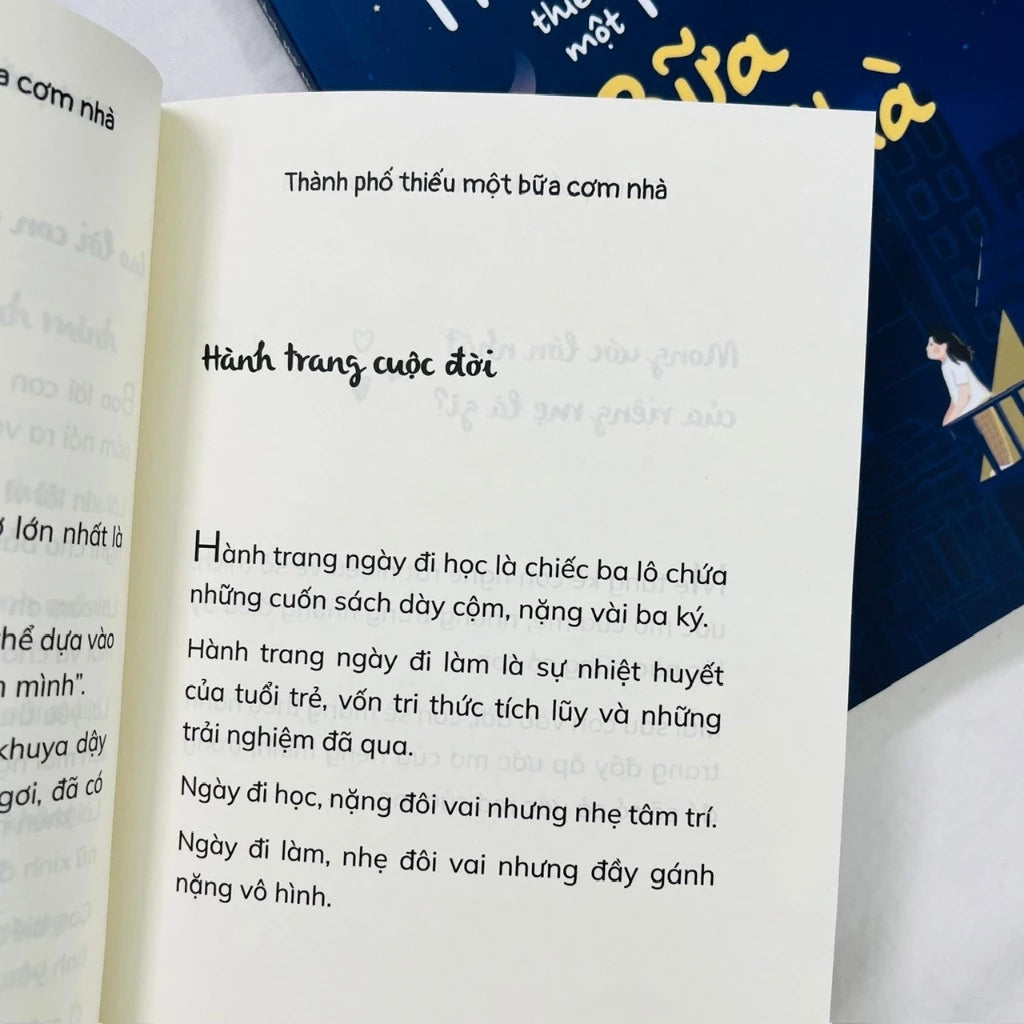 thiếu
một
Bữa
à
a cơm nhà
lớn nhất là
thể dựa vào
mình".
khuya dậy
gơi, đã có
Thành phố thiếu một bữa cơm nhà
Hành trang cuộc đời
Hành trang ngày đi học là chiếc ba lô chứa
những cuốn sách dày cộm, nặng vài ba ký.
Hành trang ngày đi làm là sự nhiệt huyết
của tuổi trẻ, vốn tri thức tích lũy và những
trải nghiệm đã qua.
Ngày đi học, nặng đôi vai nhưng nhẹ tâm trí.
Ngày đi làm, nhẹ đôi vai nhưng đầy gánh
nặng vô hình.